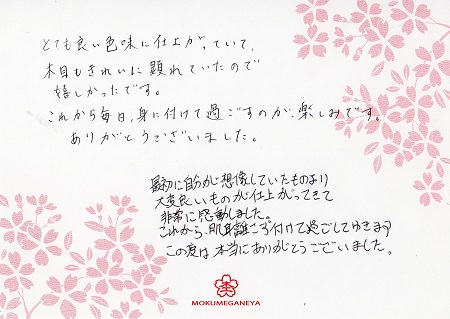 とても良い色味に仕上がっていて、
木目もきれいに顕れていたので
嬉しかったです。
これから毎日、身に付けて過ごすのが、楽しみです。
ありがとうございました。
最初に自分が想像していたものより
大変良いものが仕上がってきて
非常に感動しました。
これから、肌身離さず付けて過ごしてゆきます
この度は本当にありがとうございました。
MOKUMEGANEYA